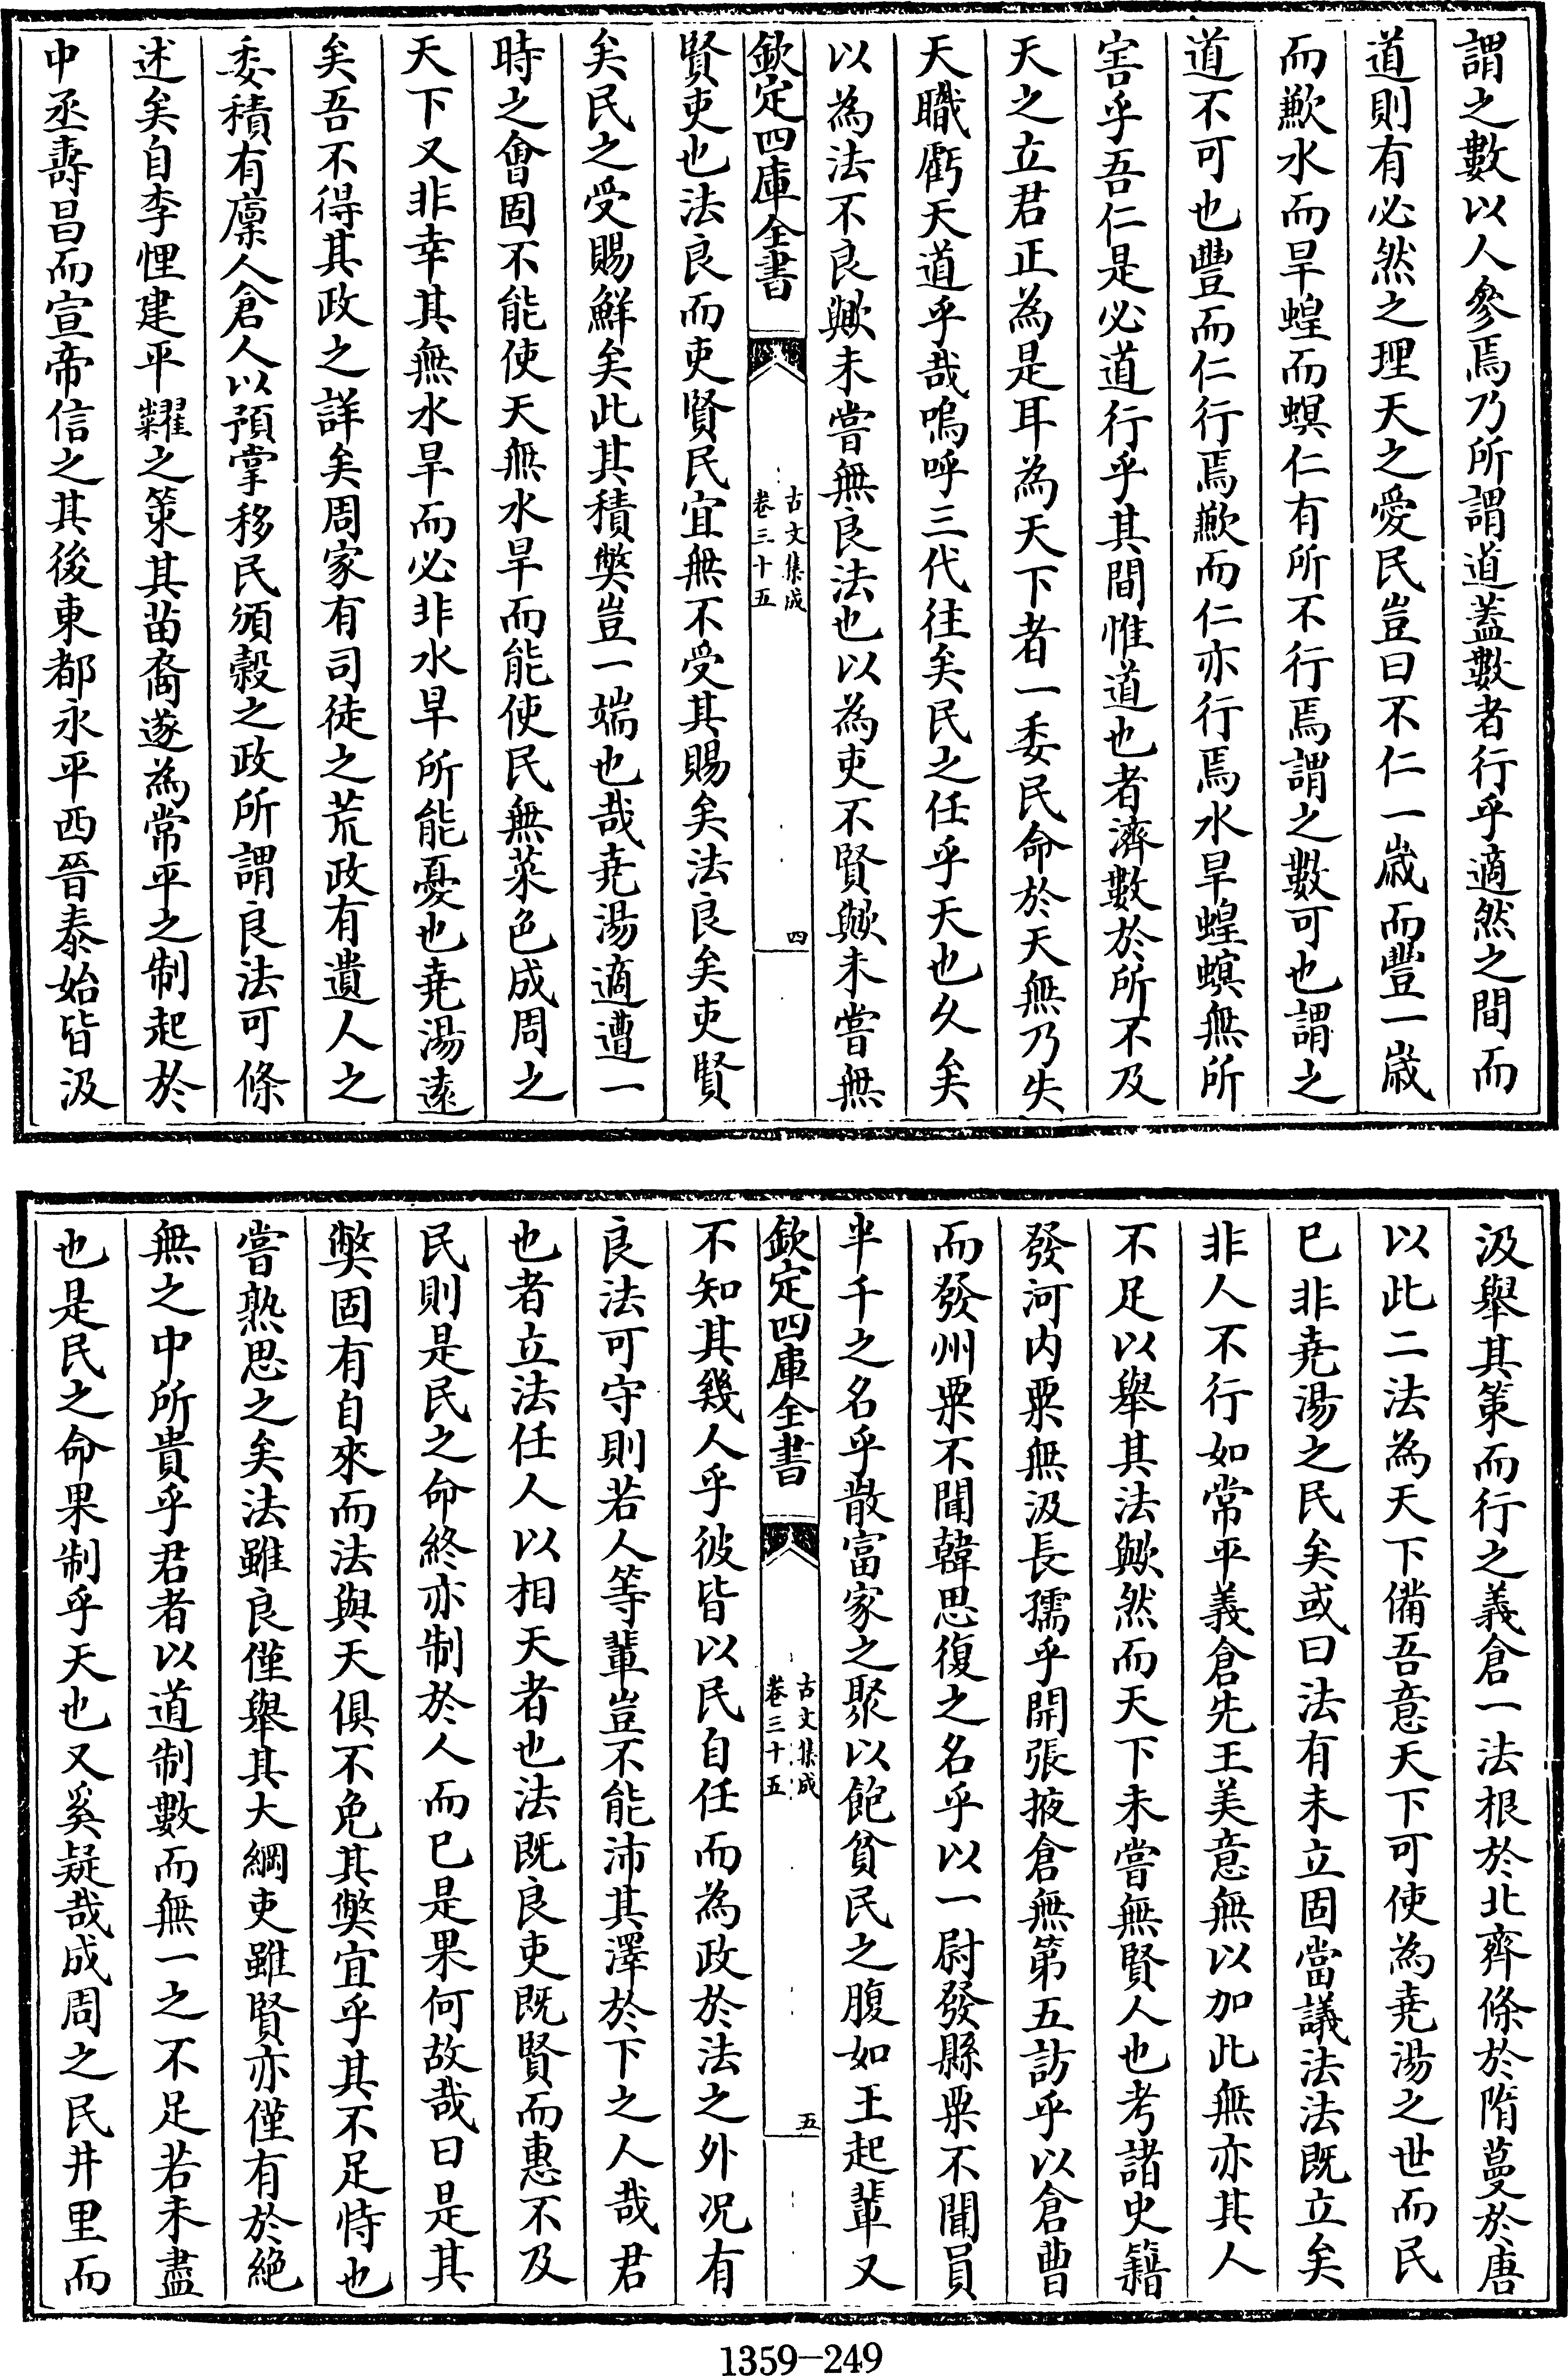 謂之數以人參焉乃所謂道蓋數者行乎適然之間而
道則有必然之理天之愛民豈曰不仁一歳而豐一歳
而歉水而旱蝗而螟仁有所不行焉謂之數可也謂之
道不可也豐而仁行焉歉而仁亦行焉水旱蝗螟無所
害乎吾仁是必道行乎其間惟道也者濟數於所不及
天之立君正為是耳為天下者一委民命於天無乃失
天職虧天道乎哉嗚呼三代往矣民之任乎天也久矣
以為法不良歟未嘗無良法也以為吏不賢歟未嘗無
欽定四庫全書
古文集成
卷三十五
四
賢吏也法良而吏賢民宜無不受其賜矣法良矣吏賢
矣民之受賜鮮矣此其積弊豈一端也哉堯湯適遭一
時之會固不能使天無水旱而能使民無菜色成周之
天下又非幸其無水旱而必非水旱所能憂也堯湯遠
矣吾不得其政之詳矣周家有司徒之荒政有遺人之
委積有廩人倉人以預掌移民頒穀之政所謂良法可條
述矣自李悝建平糶之策其苗裔遂為常平之制起於
中丞壽昌而宣帝信之其後東都永平西晉泰始皆汲
汲舉其策而行之義倉一法根於北齊條於隋蔓於唐
以此二法為天下備吾意天下可使為堯湯之世而民
已非堯湯之民矣或曰法有未立固當議法法既立矣
非人不行如常平義倉先王美意無以加此無亦其人
不足以舉其法歟然而天下未嘗無賢人也考諸史籍
發河内粟無汲長孺乎開張掖倉無第五訪乎以倉曹
而發州粟不聞韓思復之名乎以一尉發縣粟不聞員
半千之名乎散富家之聚以飽貧民之腹如王起輩又
欽定四庫全書
古文集成
卷三十五
五
不知其幾人乎彼皆以民自任而為政於法之外况有
良法可守則若人等輩豈不能沛其澤於下之人哉君
也者立法任人以相天者也法既良吏既賢而惠不及
民則是民之命終亦制於人而已是果何故哉曰是其
弊固有自來而法與天俱不免其弊宜乎其不足恃也
嘗熟思之矣法雖良僅舉其大綱吏雖賢亦僅有於絶
無之中所貴乎君者以道制數而無一之不足若未盡
也是民之命果制乎天也又奚疑哉成周之民井里而
1359-249